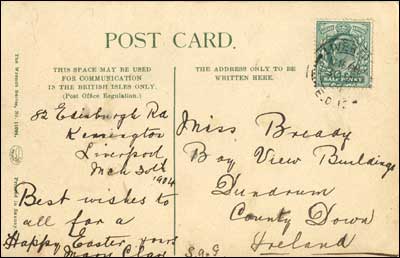 POST CARD.
THIS SPACE MAY BE USED
FOR COMMUNICATION
IN THE BRITISH ISLES ONLY.
(Post Office Regulation.)
THE ADDRESS ONLY TO BE
WRITTEN HERE.
HALF PENNY
82 Edinburgh Rd
Kensington
Liverpool
Mch 30th
1904
Best wishes to
all for a
Happy Easter, yours
Mary
Miss Bready
Bay View Buildings
Dundrum
County Down
Ireland